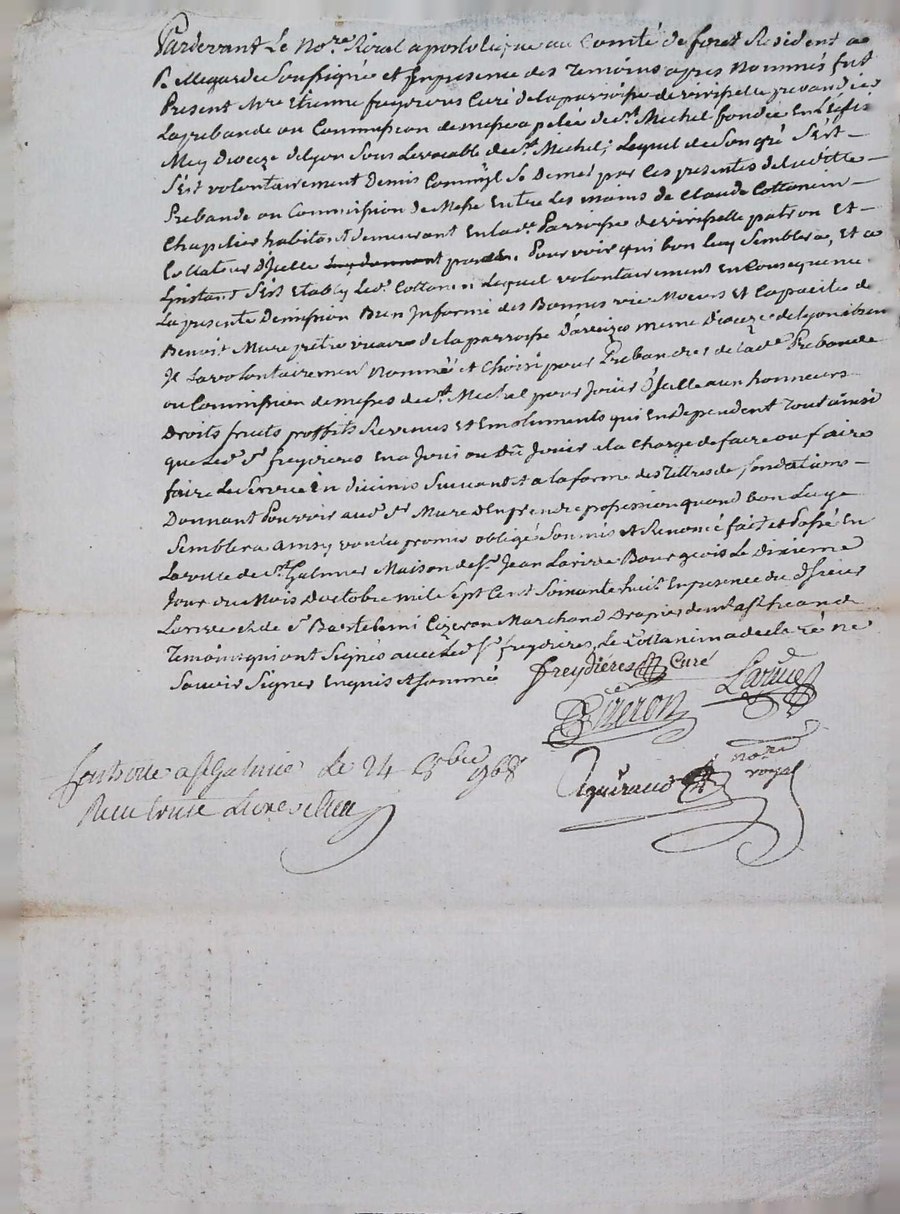 Pardevant Le No.re Roial apostolique au Comté de foret Resident a
St Megarde Soussigné et En presence des Temoins apres Nommés fut
Present M.re Etienne freydieres Curé de la parroisse de viriselle
La prebande ou Commission de messe apelée de St. Michel fondée En
Dioceze de lyon Sous Le vocable de St. Michel, Lequel de Son gré S'Est
S'Est volontairement Demis Comm'yl Se Demet par Ces presentes de laditte
Prebande ou Commission de Messe Entre Les mains de Claude Cottancin
Chapelier habitant demeurant En lad.e Parroisse de virisselle patron Et
Collateur d'jcelle pour En Pourvoir qui bon luy Semblera, Et a
L'jnstand S'Est Etably Led. Cottancin Lequel volontairement En Consequence
La presente Demission Bien Jnformé des Bonnes vie Moeurs Et Capacités de
Benoit Mure prêtre vicaire de la parroisse D'aveizo meme Dioceze de lyon
Jl La volontairement Nommé et Choisi pour Prebandier de lad.e Prebande
ou Commission de messes de St. Michel pour Jouir d'jcelle aux honneurs
Droits fruits proffits Revenus Et Emoluments qui En dependent Tout ainsi
que Led. Sr freydieres En a Joui ou Dû Jouir a la Charge de faire ou faire
faire Le Service En divinis Suivant Et a la forme des Lettres de fondations
Donnant Pouvoir aud. Sr Mure d'En prendre possession quand bon Luy
Semblera ainsy voulu promis obligé Soumis Et Renoncé fait et Passé En
La ville de St. Galmier Maison de Sr. Jean Larive Bourgeois Le Dixieme
Jour du Mois D'octobre mil Sept Cent Soixante huit En presence du d. Sieur
Larive Et de Sr Bartelemi Cizeron Marchand Drapier dem.t a St heand
Temoins qui ont Signés avec Led. Sr. freydieres, Le Cottancin a declaré ne
Savoir Signer Enquis Et Sommé
freydieres Curé
Cizeron Larive
no.re royal
Controllé a St Galmier le 24 8bre 1768
Reçu